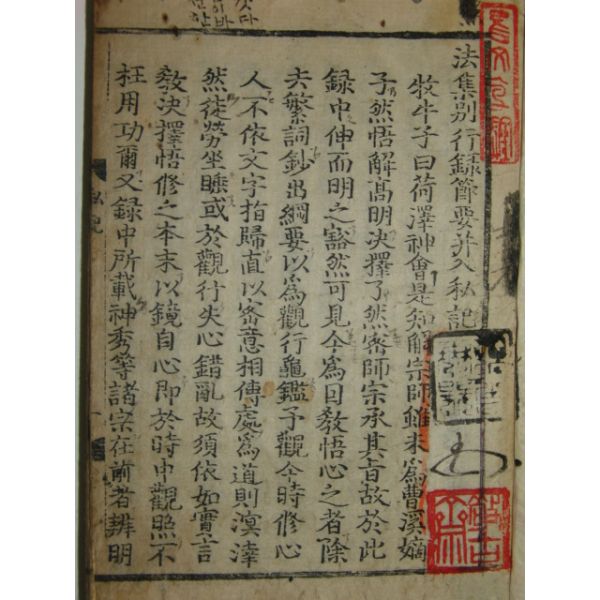 法集別行録節要并入私記
牧牛子曰荷澤神會是知解宗師雖未為曹溪嫡
子然悟解髙明決擇了然密師宗承其旨故於此
録中伸而明之豁然可見今為因教悟心之者除
去繁詞鈔出綱要以為觀行龜鑑予觀今時修心
人不依文字指歸直以密意相傳處為道則溟涬
然徒勞坐睡或於觀行失心錯亂故須依如實言
教決擇悟修之本末以鏡自心即於時中觀照不
枉用功爾又録中所載神秀等諸宗在前者辨明
私記